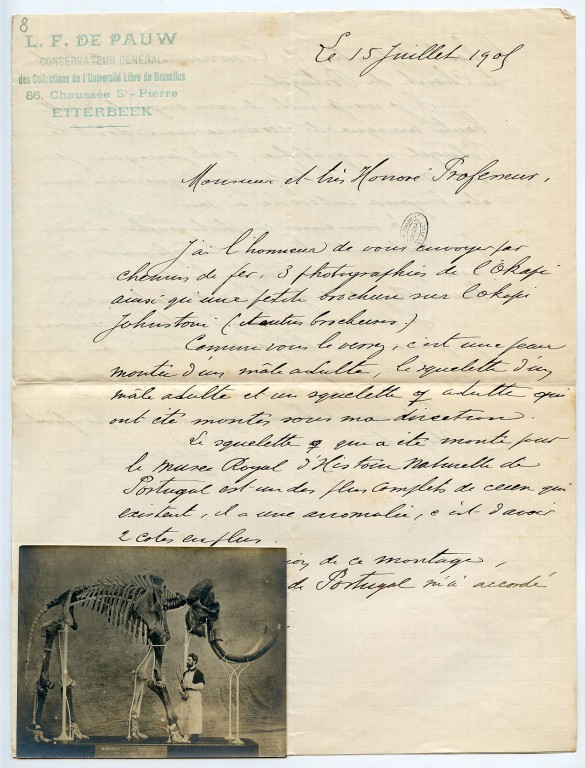 8
L. F. DE PAUW
CONSERVATEUR GÉNÉRAL
des Collections de l'Université Libre de Bruxelles
86, Chaussée St-Pierre
ETTERBEEK
Le 15 Juillet 1905
Monsieur et très Honoré Professeur,
J'ai l'honneur de vous envoyer par
chemin de fer, 3 photographies de l'Okapi
ainsi qu'une petite brochure sur l'okapi
Johnstoni (et autres brochures.)
Comme vous le verrez, c'est une peau
montée d'un mâle adulte, le squelette d'un
mâle adulte et un squelette ♀ adulte qui
ont été montés sous ma direction.
Le squelette ♀ qui a été monté pour
le Musée Royal d'Histoire Naturelle de
Portugal est un des plus complets de ceux qui
existent, il a une anomalie, c'est d'avoir
2 cotes en plus.
de ce montage,
de Portugal m'a accordé